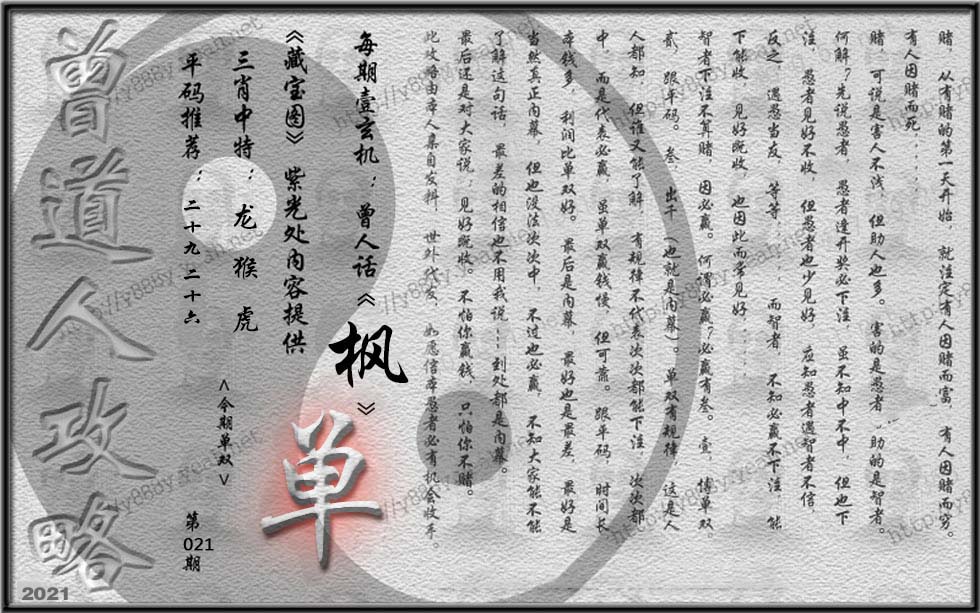 赌，从有赌的第一天开始，就注定有人因赌而富，有人因赌而穷。
有人因赌而死，．．．．．
赌，可说是害人不浅，但助人也多。害的是愚者，助的是智者。
何解？先说愚者，愚者逢开奖必下注，虽不知中不中，但也下
注，愚者见好不收，但愚者也少见好，应知愚者遇智者不信，
反之，遇愚当友，等等．．．．．．而智者，不知必赢不下注，能
下能收，见好既收，也因此而常见好．．．．．
智者下注不算赌，因必赢。何谓必赢？必赢有叁。壹，博单双，
贰，跟平码。叁，出千（也就是内幕）。单双有规律，这是人
人都知，但谁又能了解，有规律不代表次次都能下注，次次都
中，而是代表必赢，虽单双赢钱慢，但可靠。跟平码，时间长
本钱多，利润比单双好。最后是内幕，最好也是最差，最好是
当然真正内幕，但也没法次次中，不过也必赢，不知大家能不能
了解这句话，最差的相信也不用我说…到处都是内幕。
最后还是对大家说：见好既收。不怕你赢钱，只怕你不赌。
此攻略由本人集自发料，世外代友，如愿信本愚者必有机会收手。
每期壹玄机：曾人话《枫》
《藏宝图》紫光处内容提供
三肖中特：龙猴虎
平码推荐：二十九二十六
<今期单双>
单
第021期
曾道人攻略
2021